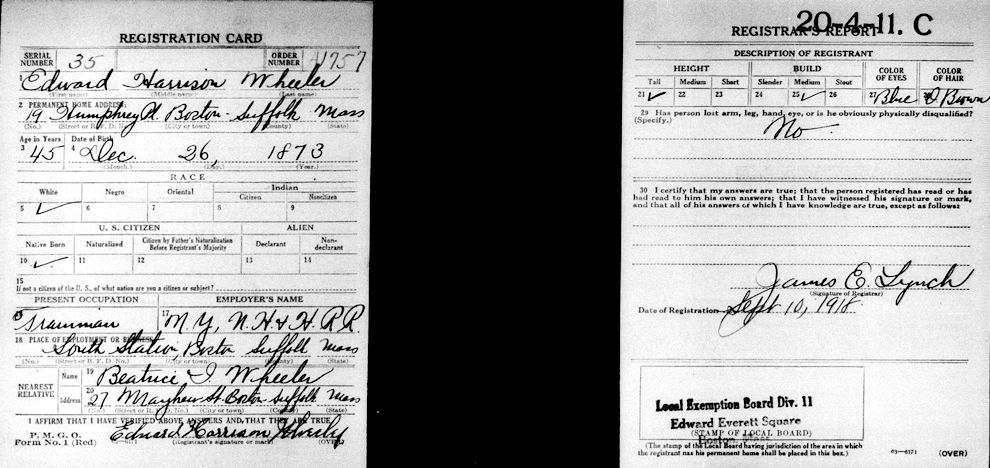 REGISTRATION CARD
SERIAL NUMBER 35 ORDER NUMBER
1 Edward Harrison Wheeler
(First name) (Middle name) (Last name)
2 PERMANENT HOME ADDRESS:
19 Humphrey St Boston Suffolk Mass
(No.) (Street or R. F. D. No.) (City or town) (County) (State)
Age in Years Date of Birth
3 45 4 Dec. 26, 1873
(Month.) (Day.) (Year.)
RACE
White Negro Oriental Indian
Citizen Noncitizen
5 ✓ 6 7 8 9
U. S. CITIZEN ALIEN
Native Born Naturalized Citizen by Father's Naturalization Before Registrant's Majority Declarant Non-declarant
10 ✓ 11 12 13 14
15
If not a citizen of the U. S., of what nation are you a citizen or subject?
PRESENT OCCUPATION EMPLOYER'S NAME
16 Trainman 17 N. Y., N. H & H. R R.
18 PLACE OF EMPLOYMENT OR BUSINESS:
South Station, Boston Suffolk Mass
(No.) (Street or R. F. D. No.) (City or town) (County) (State)
NEAREST RELATIVE Name 19 Beatrice I. Wheeler
Address 20 27 Mayhew St Boston Suffolk Mass
(No.) (Street or R. F. D. No.) (City or town) (County) (State)
I AFFIRM THAT I HAVE VERIFIED ABOVE ANSWERS AND THAT THEY ARE TRUE
P. M. G. O.
Form No. 1 (Red) Edward Harrison Wheeler
(Registrant's signature or mark) (OVER)
20-4-11. C
REGISTRAR'S REPORT
DESCRIPTION OF REGISTRANT
HEIGHT BUILD COLOR OF EYES COLOR OF HAIR
Tall Medium Short Slender Medium Stout
21 ✓ 22 23 24 25 ✓ 26 27 Blue 28 D Brown
29 Has person lost arm, leg, hand, eye, or is he obviously physically disqualified?
(Specify.) No.
30 I certify that my answers are true; that the person registered has read or has
had read to him his own answers; that I have witnessed his signature or mark,
and that all of his answers of which I have knowledge are true, except as follows:
James E. Lynch
(Signature of Registrar)
Date of Registration Sept 10, 1918
Local Exemption Board Div. 11
Edward Everett Square
(STAMP OF LOCAL BOARD)
Boston, Mass.
(The stamp of the Local Board having jurisdiction of the area in which
the registrant has his permanent home shall be placed in this box.)
63—6171 (OVER)